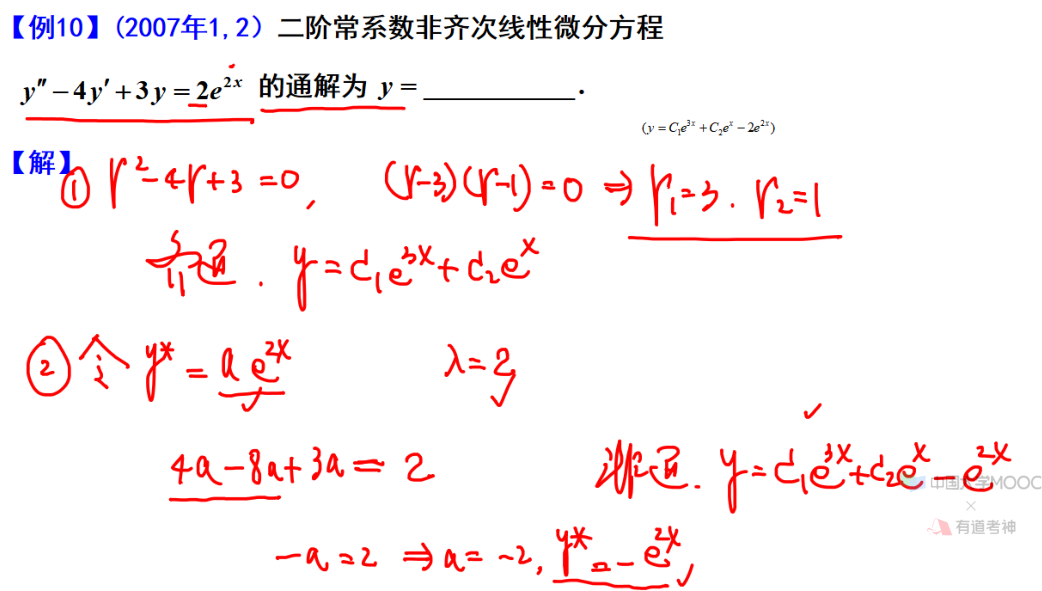 【例10】(2007年1,2）二阶常系数非齐次线性微分方程
y″ − 4y′ + 3y = 2e^{2x} 的通解为 y = ___________ .
(y = C₁e^{3x} + C₂e^{x} − 2e^{2x})
【解】① r² − 4r + 3 = 0, (r−3)(r−1) = 0 ⇒ r₁ = 3. r₂ = 1
齐通. y = C₁e^{3x} + C₂e^{x}
② 令 y* = a e^{2x} λ = 2
4a − 8a + 3a = 2
非通. y = C₁e^{3x} + C₂e^{x} − e^{2x}
中国大学MOOC
×
有道考神
−a = 2 ⇒ a = −2, y* = −e^{2x}